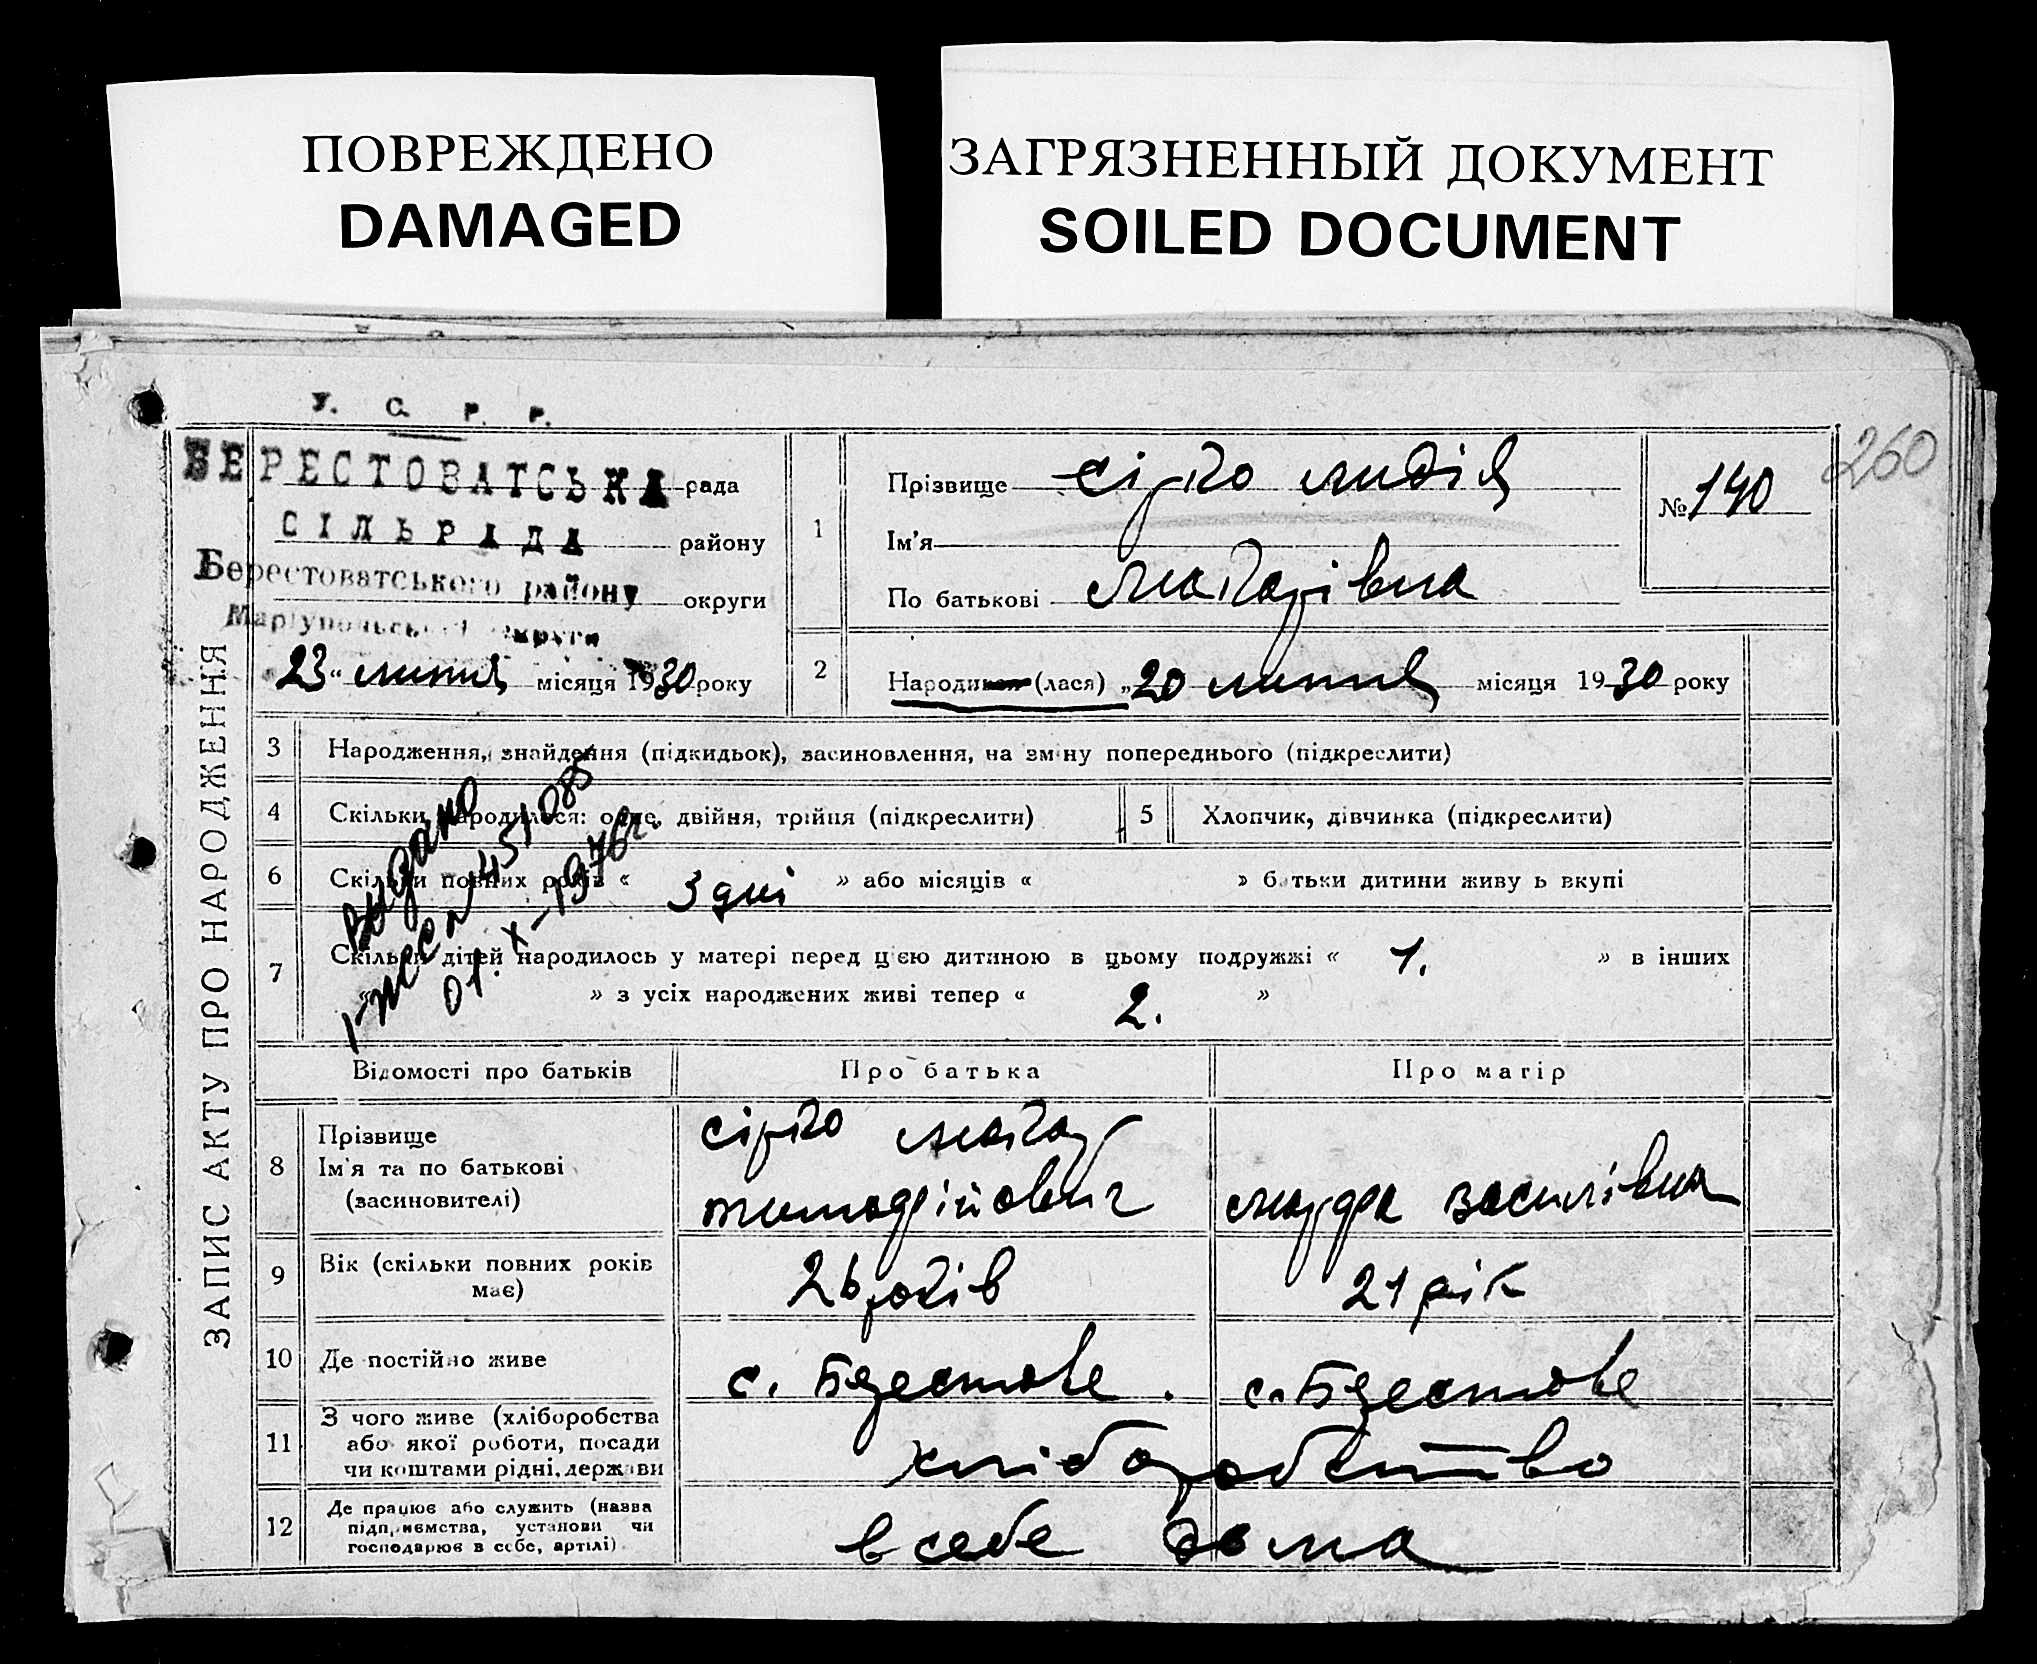 ПОВРЕЖДЕНО
DAMAGED
ЗАГРЯЗНЕННЫЙ ДОКУМЕНТ
SOILED DOCUMENT
У. С. Р. Р.
260
БЕРЕСТОВАТСЬКА рада
СІЛЬРАДА району
Берестоватського району округи
Маріупольської округи
23 " липня місяця 1930 року
ЗАПИС АКТУ ПРО НАРОДЖЕННЯ
1 Прізвище Сірко Лидія
Ім'я
По батькові Макарівна
№ 140
2 Народився (лася) „20 липня місяця 1930 року
3 Народження, знайдення (підкидьок), засиновлення, на зміну попереднього (підкреслити)
4 Скільки народилося: одне, двійня, трійня (підкреслити) 5 Хлопчик, дівчинка (підкреслити)
6 Скільки повних років « 3 дні » або місяців « » батьки дитини живуть вкупі
7 Скільки дітей народилось у матері перед цією дитиною в цьому подружжі « 1. » в інших
« » з усіх народжених живі тепер « 2. »
Выдано
451085
01. X-1976г.
Відомості про батьків Про батька Про матір
8 Прізвище
Ім'я та по батькові
(засиновителі)
Сірко Макар
Василівна
9 Вік (скільки повних років
має)
26 років 21 рік
10 Де постійно живе с. Берестове. с. Берестове
11 З чого живе (хліборобства
або якої роботи, посади
чи коштами рідні, держави
хліборобство
12 Де працює або служить (назва
підприємства, установи чи
господарює в себе, артілі)
в себе дома